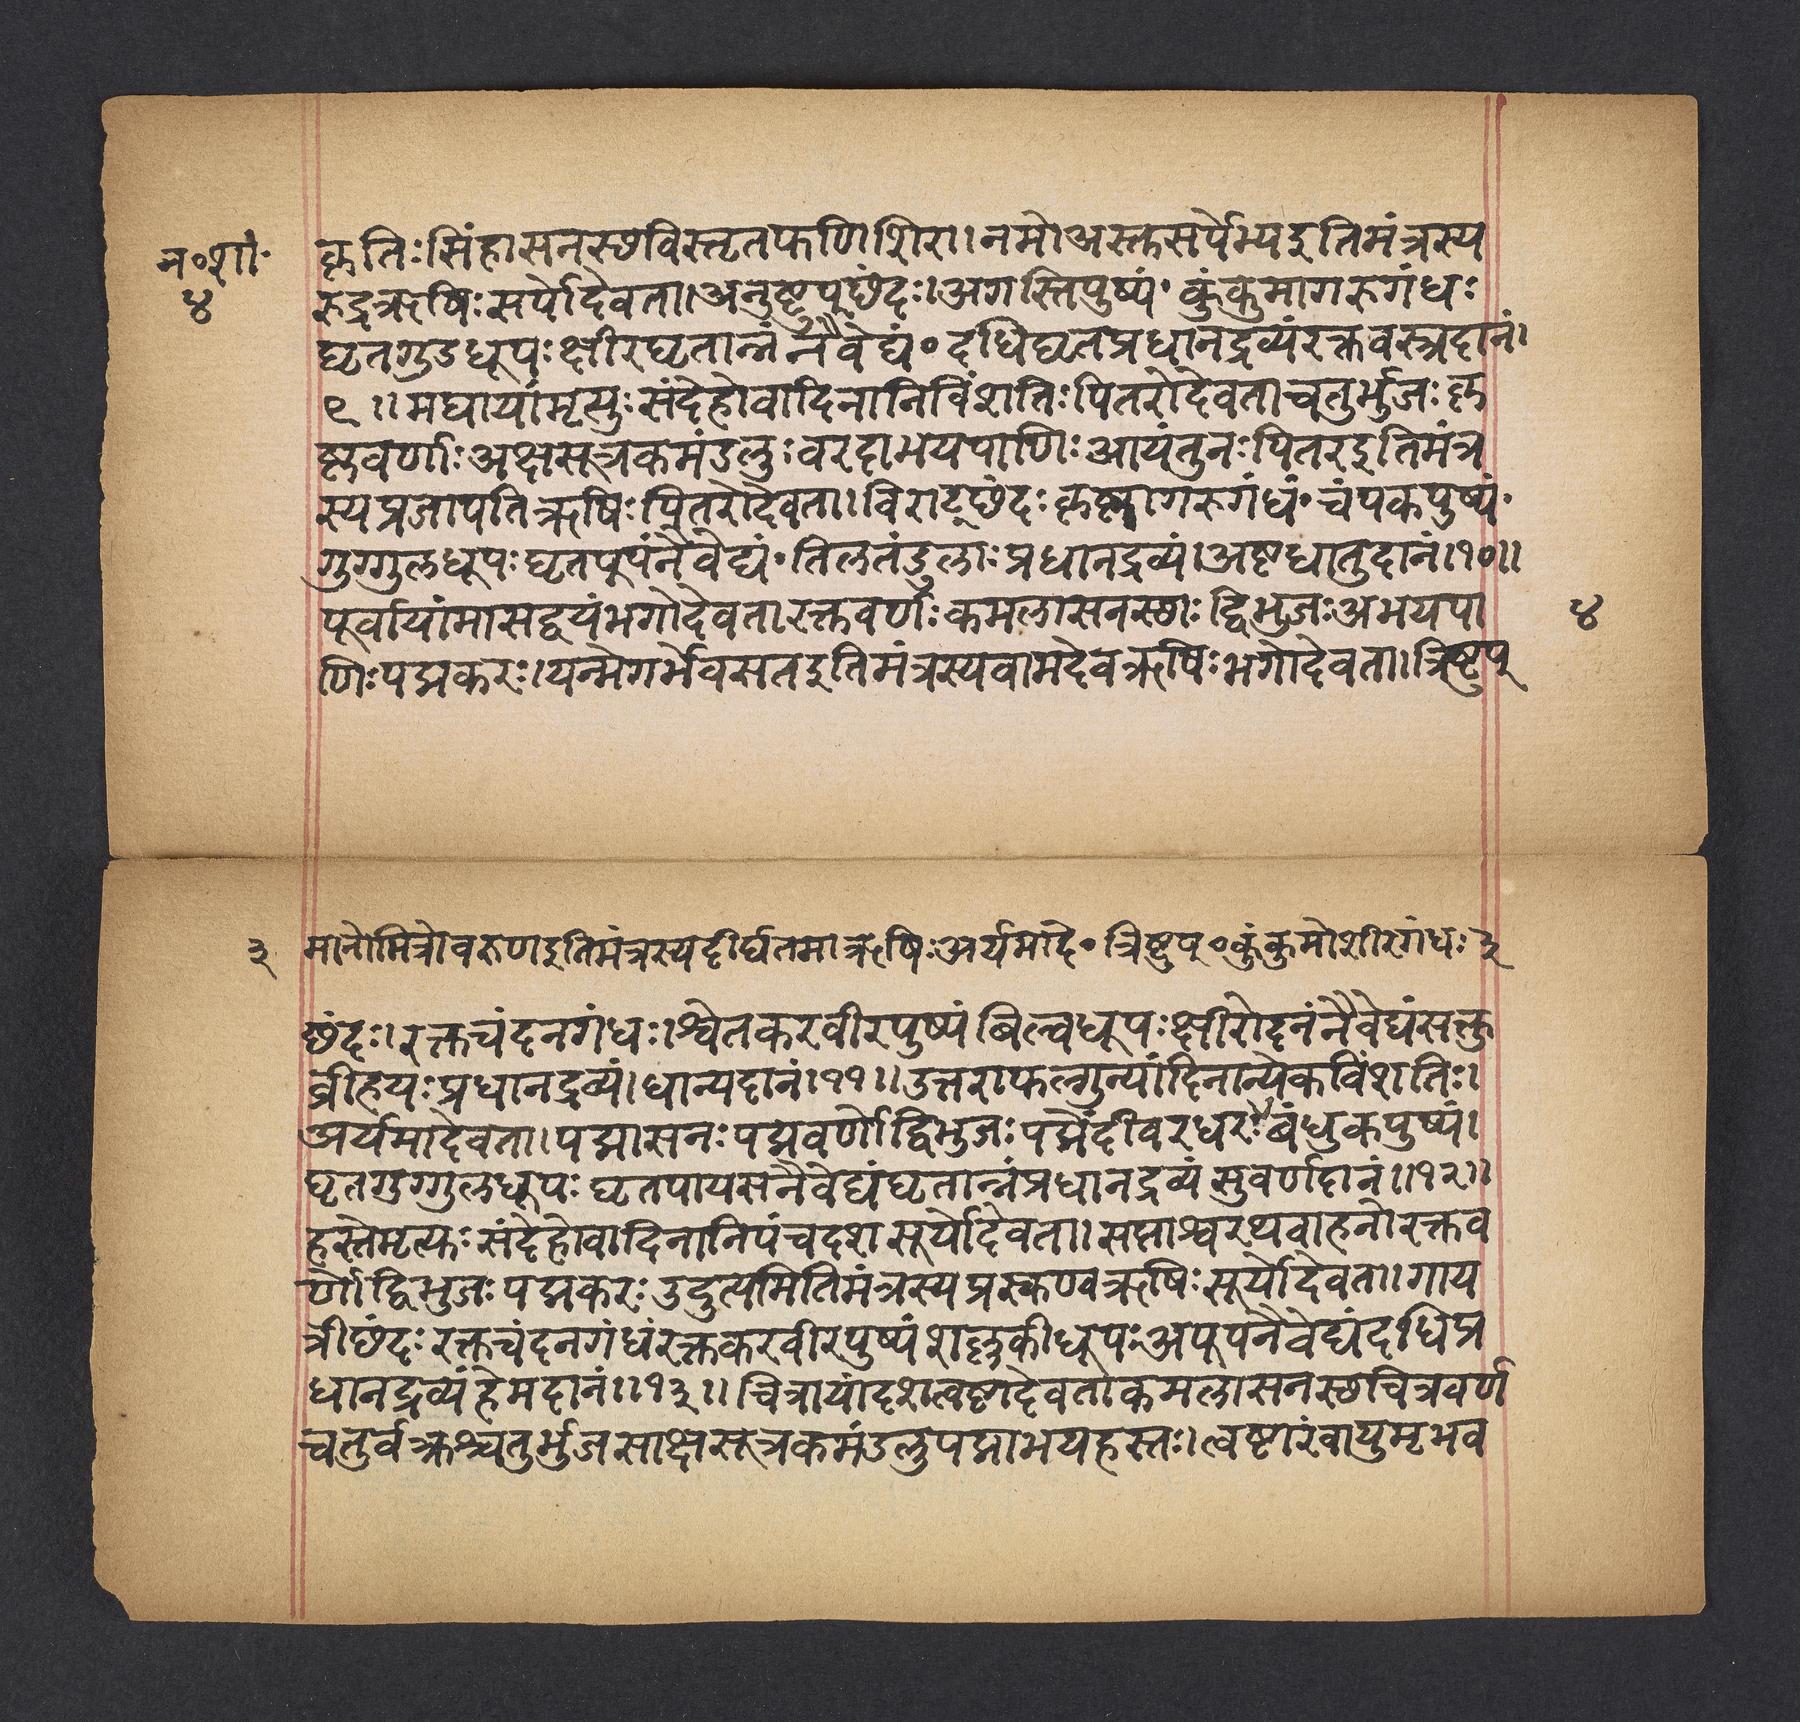 न०शां॰
४
कृतिः सिंहासनस्छविस्तृतफणिशिरा। नमो अस्तुसर्पेभ्यइतिमंत्रस्य
रुद्रऋषिः सर्पोदेवता। अनुष्टुप्छंदः। अगस्तिपुष्यं॰ कुंकुमागरुगंधः
घृतगुडधूपः क्षीरघृतान्नं नैवेद्यं० दधिघृतप्रधानद्रव्यंरक्तवस्त्रदानं।
९ ॥ मघायांमृत्युः संदेहोवादिनानिविंशतिः पितरोदेवताचतुर्भुजः कृ
ष्णवर्णाः अक्षसूत्रकमंडलुः वरदाभयपाणिः आयंतुनः पितरइतिमंत्र
स्यप्रजापतिऋषिः पितरोदेवता। विराट्छंदः कृष्णागरुगंधं॰ चंपकपुष्यं॰
गुग्गुलधूपः घृतपूपंनैवेद्यं॰ तिलतंडुलाः प्रधानद्रव्यं। अष्टधातुदानं।१०॥
पूर्वायांमासद्वयंभगोदेवतारक्तवर्णः कमलासनस्छाः द्विभुजः अभयपा
४
णिः पद्मकरः। यन्मेगर्भेवसतइतिमंत्रस्यवामदेवऋषिः भगोदेवता। त्रिष्टुप्
३ मानोमित्रोवरुणइतिमंत्रस्यदीर्घतमाऋषिः अर्यमादे० त्रिष्टुप्०कुंकुमोशीरगंधः ३
छंदः। रक्तचंदनगंधः। श्वेतकरवीरपुष्यं बिल्वधूपः क्षीरोदनंनैवेद्यंसक्तु
व्रीहयः प्रधानद्रव्यं। धान्यदानं।११॥ उत्तराफल्गुन्यांदिनान्येकविंशतिः।
अर्यमादेवता। पद्मासनः पद्मवर्णोद्विभुजः पद्मेंदीवरधरः बंधुकपुष्यं।
घृतगुग्गुलधूपः घृतपायसनैवेद्यंघृतान्नंप्रधानद्रव्यं सुवर्णदानं॥१२॥
हस्तेमृत्युः संदेहोवादिनानिपंचदश सूर्योदेवता। सप्ताश्वरथवाहनोरक्तव
र्णोद्विभुजः पद्मकरः उदुत्यमितिमंत्रस्यप्रस्कण्वऋषिः सूर्योदेवता। गाय
त्रीछंदः रक्तचंदनगंधंरक्तकरवीरपुष्यं शल्लकीधूपः अपूपनैवेद्यंदधिप्र
धानद्रव्यंहेमदानं॥१३॥ चित्रायांदशत्वष्टादेवताकमलासनस्छचित्रवर्ण
चतुर्वक्त्रश्चतुर्भुजसाक्षसूत्रकमंडलुपद्माभयहस्तः। त्वष्टारंवायुमृभव